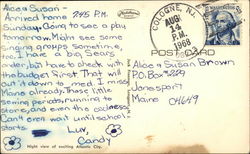 Alice & Susan -
Arrived home 2:45 P.M.
Sunday. Going to see a play
tomorrow. Might see some
singing groups sometime,
too. I have a big Sears
order, but have to check with
the budget first. That will
cut it down to me! I miss
Maine already. Those little
store, and even the coldness.
Can't even wait until school
starts.
Luv,
Candy
Night view of exciting Atlantic City.
COLOGNE, N.J.
AUG
P.M.
1968
POST CARD
Alice & Susan Brown
P.O. Box #229
Jonesport
Maine
04649